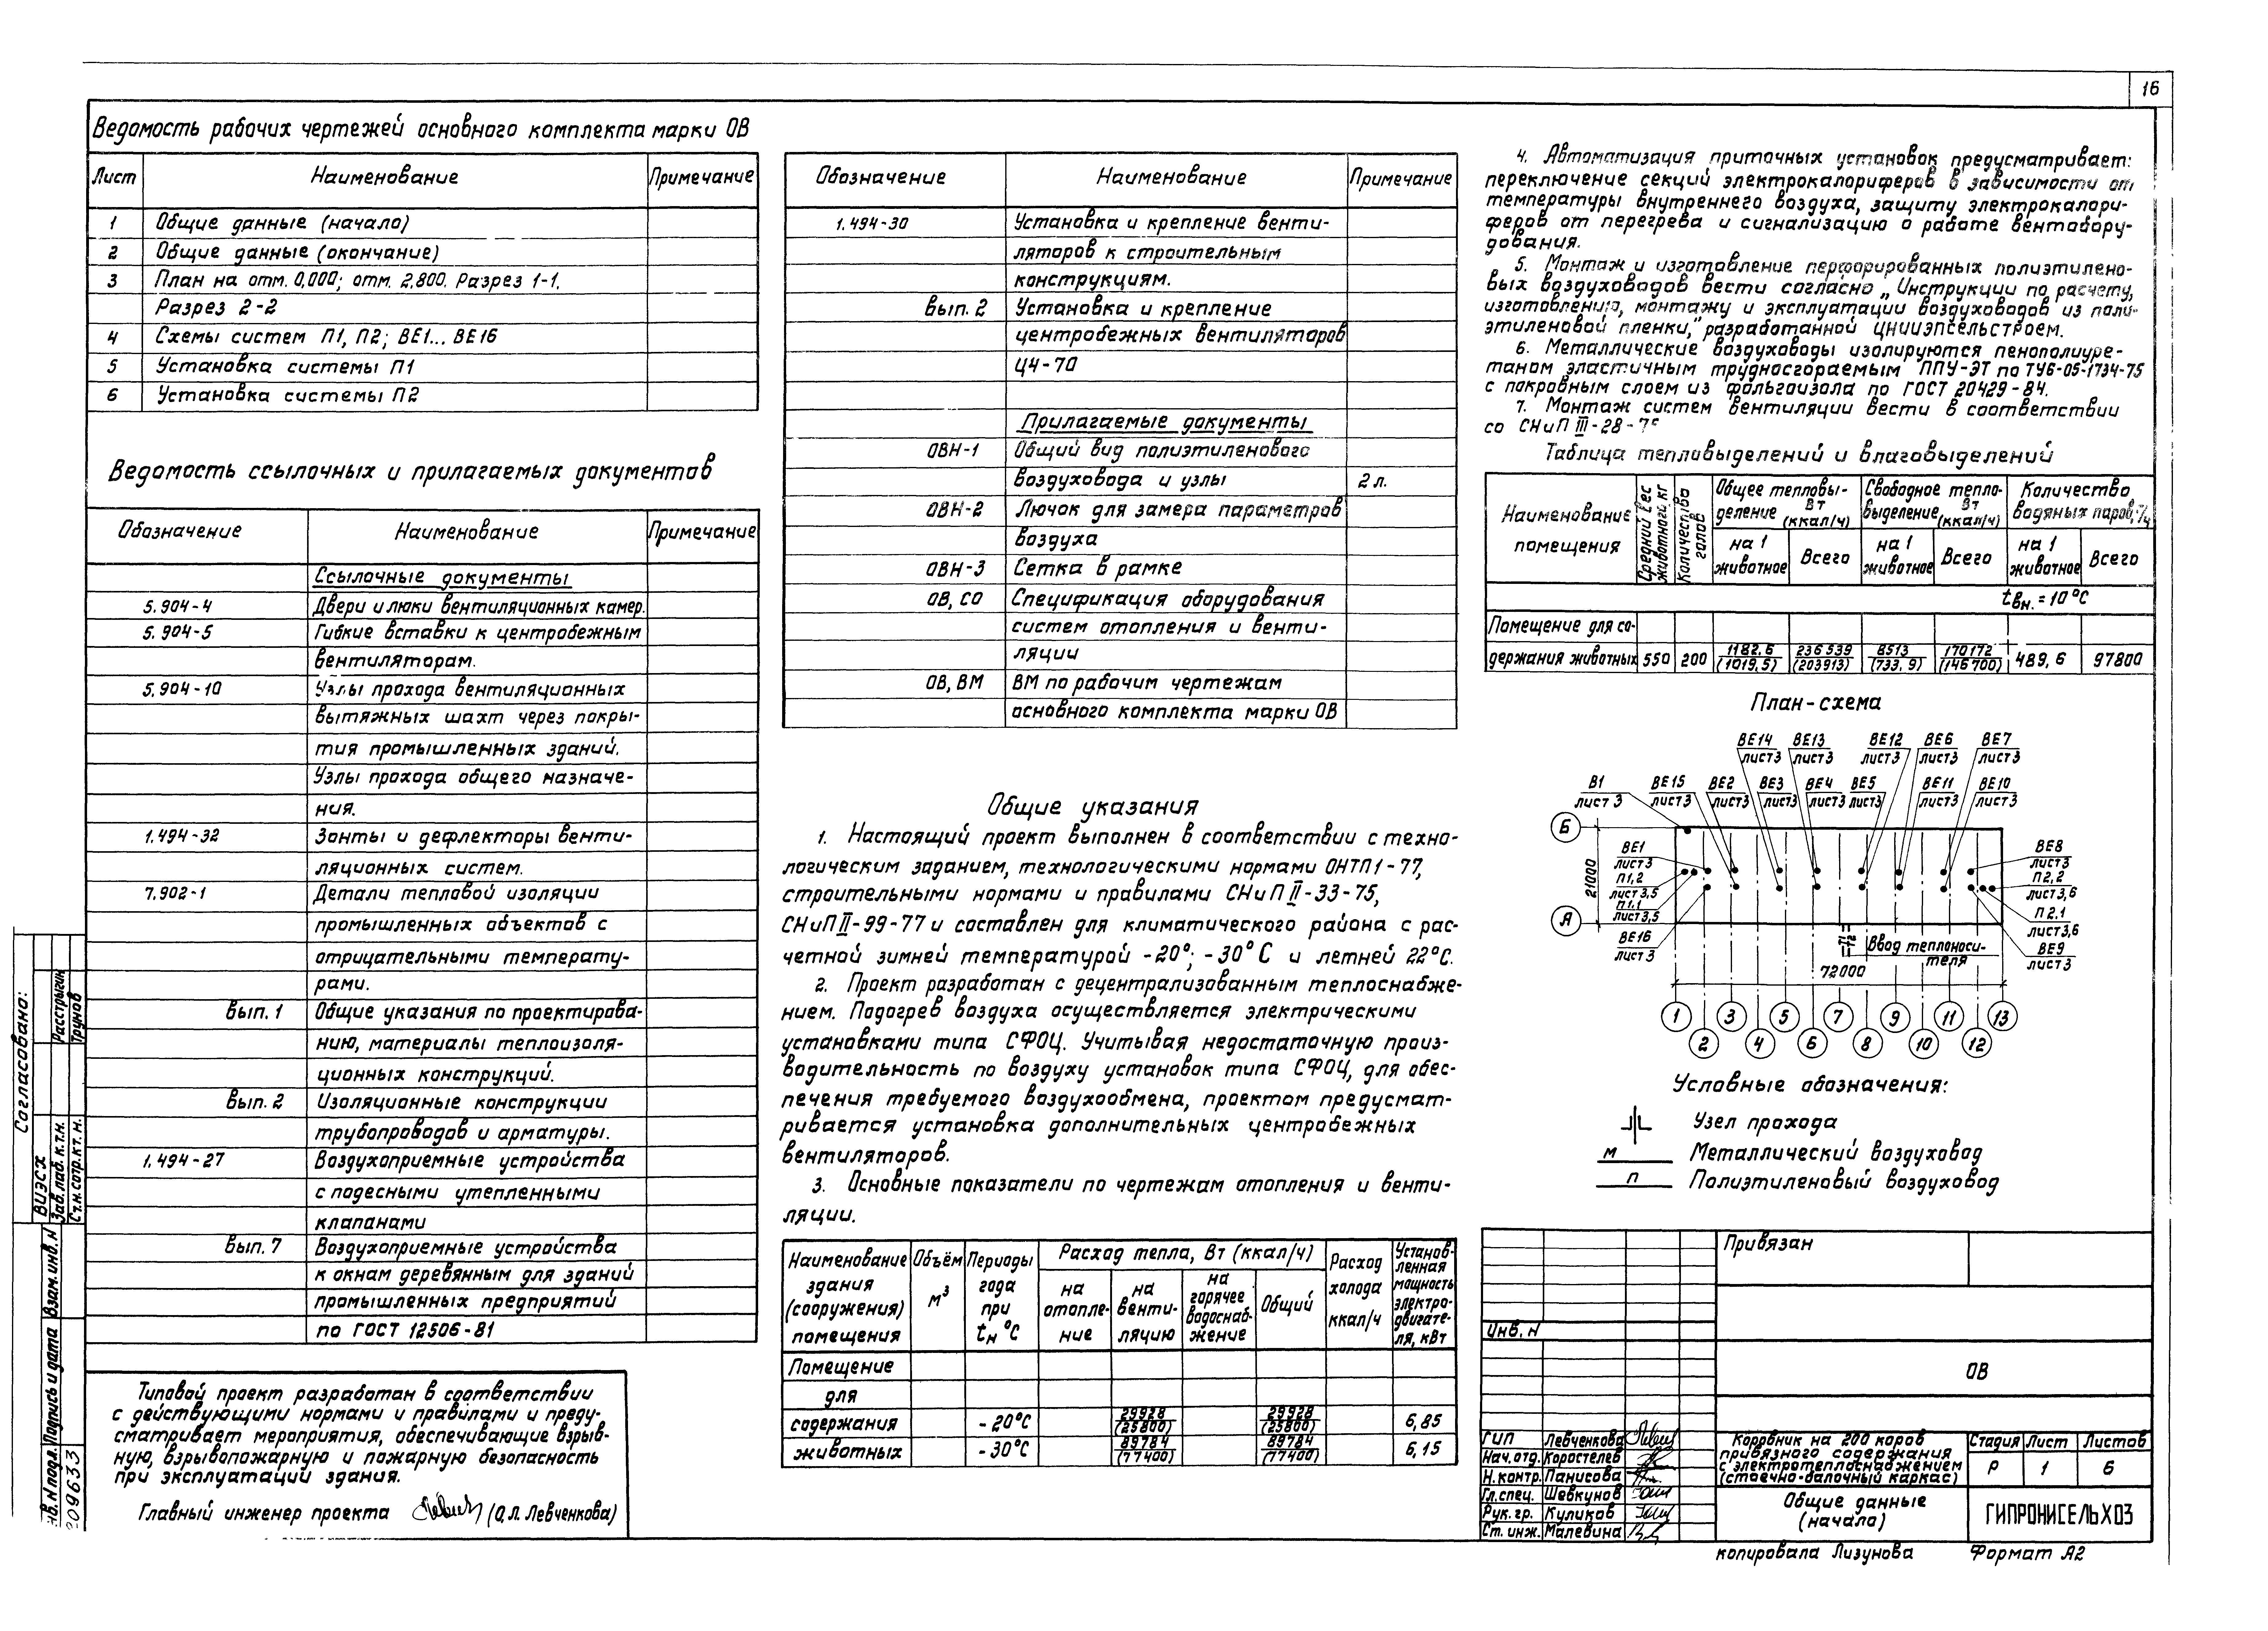 16
Ведомость рабочих чертежей основного комплекта марки ОВ
Лист Наименование Примечание
1 Общие данные (начало)
2 Общие данные (окончание)
3 План на отм. 0,000; отм. 2,800. Разрез 1-1.
Разрез 2-2
4 Схемы систем П1, П2; ВЕ1... ВЕ16
5 Установка системы П1
6 Установка системы П2
Ведомость ссылочных и прилагаемых документов
Обозначение Наименование Примечание
Ссылочные документы
5.904-4 Двери и люки вентиляционных камер.
5.904-5 Гибкие вставки к центробежным
вентиляторам.
5.904-10 Узлы прохода вентиляционных
вытяжных шахт через покры-
тия промышленных зданий.
Узлы прохода общего назначе-
ния.
1.494-32 Зонты и дефлекторы венти-
ляционных систем.
7.902-1 Детали тепловой изоляции
промышленных объектов с
отрицательными температу-
рами.
Вып. 1 Общие указания по проектирова-
нию, материалы теплоизоля-
ционных конструкций.
Вып. 2 Изоляционные конструкции
трубопроводов и арматуры.
1.494-27 Воздухоприемные устройства
с подвесными утепленными
клапанами
Вып. 7 Воздухоприемные устройства
к окнам деревянным для зданий
промышленных предприятий
по ГОСТ 12506-81
Типовой проект разработан в соответствии
с действующими нормами и правилами и преду-
сматривает мероприятия, обеспечивающие взрыв-
ную, взрывопожарную и пожарную безопасность
при эксплуатации здания.
Главный инженер проекта (О.Л. Левченкова)
Обозначение Наименование Примечание
1.494-30 Установка и крепление венти-
ляторов к строительным
конструкциям.
Вып. 2 Установка и крепление
центробежных вентиляторов
Ц4-70
Прилагаемые документы
ОВН-1 Общий вид полиэтиленового
воздуховода и узлы 2 л.
ОВН-2 Лючок для замера параметров
воздуха
ОВН-3 Сетка в рамке
ОВ, СО Спецификация оборудования
систем отопления и венти-
ляции
ОВ, ВМ ВМ по рабочим чертежам
основного комплекта марки ОВ
Общие указания
1. Настоящий проект выполнен в соответствии с техно-
логическим заданием, технологическими нормами ОНТП1-77,
строительными нормами и правилами СНиП II-33-75,
СНиП II-99-77 и составлен для климатического района с рас-
четной зимней температурой -20°; -30°С и летней 22°С.
2. Проект разработан с децентрализованным теплоснабже-
нием. Подогрев воздуха осуществляется электрическими
установками типа СФОЦ. Учитывая недостаточную произ-
водительность по воздуху установок типа СФОЦ, для обес-
печения требуемого воздухообмена, проектом предусмат-
ривается установка дополнительных центробежных
вентиляторов.
3. Основные показатели по чертежам отопления и венти-
ляции.
Наименование здания (сооружения) помещения Объём м³ Периоды года при tн °С Расход тепла, Вт (ккал/ч) Расход холода ккал/ч Установ-ленная мощность электро-двигате-ля, кВт
на отопле-ние на венти-ляцию на горячее водоснаб-жение Общий
Помещение
для
содержания -20°С 29928 (25800) 29928 (25800) 6,85
животных -30°С 89784 (77400) 89784 (77400) 6,15
4. Автоматизация приточных установок предусматривает:
переключение секций электрокалориферов в зависимости от
температуры внутреннего воздуха, защиту электрокалори-
феров от перегрева и сигнализацию о работе вентобору-
дования.
5. Монтаж и изготовление перфорированных полиэтилено-
вых воздуховодов вести согласно „Инструкции по расчету,
изготовлению, монтажу и эксплуатации воздуховодов из поли-
этиленовой пленки," разработанной ЦНИИЭПСЕЛЬСТРОЕМ.
6. Металлические воздуховоды изолируются пенополиуре-
таном эластичным трудносгораемым ППУ-ЭТ по ТУ6-05-1734-75
с покровным слоем из фольгоизола по ГОСТ 20429-84.
7. Монтаж систем вентиляции вести в соответствии
со СНиП III-28-75
Таблица тепловыделений и влаговыделений
Наименование помещения Средний вес животного, кг Количество голов Общее тепловы-деление Вт (ккал/ч) Свободное тепло-выделение, Вт (ккал/ч) Количество водяных паров, г/ч
на 1 животное Всего на 1 животное Всего на 1 животное Всего
tвн. = 10°С
Помещение для со-
держания животных 550 200 1182,6 (1019,5) 236539 (203913) 8513 (733,9) 170172 (146700) 489,6 97800
План-схема
ВЕ14 ВЕ13 ВЕ12 ВЕ6 ВЕ7
лист3 лист3 лист3 лист3 лист3
В1 ВЕ15 ВЕ2 ВЕ3 ВЕ4 ВЕ5 ВЕ11 ВЕ10
лист 3 лист3 лист3 лист3 лист3 лист3 лист3 лист3
Б
21000
А
ВЕ1
лист3
П1,2
лист3,5
П1.1
лист3,5
ВЕ16
лист3
ВЕ8
лист3
П2,2
лист3,6
П2.1
лист3,6
ВЕ9
лист3
Ввод теплоноси-
теля
72000
1 3 5 7 9 11 13
2 4 6 8 10 12
Условные обозначения:
Узел прохода
м Металлический воздуховод
п Полиэтиленовый воздуховод
Привязан
Инв. N
ОВ
ГИП Левченкова
Нач. отд. Коростелев
Н.контр. Панисова
Гл. спец. Шевкунов
Рук. гр. Куликов
Ст. инж. Малевина
Коровник на 200 коров
привязного содержания
с электротеплоснабжением
(стоечно-балочный каркас)
Стадия Лист Листов
Р 1 6
Общие данные
(начало)
ГИПРОНИСЕЛЬХОЗ
копировала Лизунова Формат А2
Согласовано:
ВИЭСХ
Зав. лаб. к.т.н. Расстригин
Ст. н. сотр. к.т.н. Трунов
Взам. инв. N
Подпись и дата
Инв. N подл.